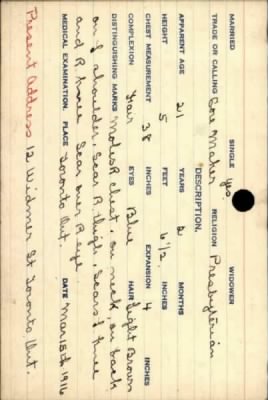 MARRIED SINGLE yes. WIDOWER
TRADE OR CALLING Maker RELIGION Presbyterian
DESCRIPTION.
APPARENT AGE 21 YEARS 2 MONTHS
HEIGHT 5 FEET 6 1/2 INCHES
CHEST MEASUREMENT 38 INCHES EXPANSION 4 INCHES
COMPLEXION Fair EYES Blue HAIR Light Brown
DISTINGUISHING MARKS Moles R chest, on neck, on back
on L shoulder, Scar R thigh, Scars L knee
and R knee Scar over R eye
MEDICAL EXAMINATION PLACE Toronto Ont. DATE Mar 15th 1916
Present Address 12 Widmer St Toronto Ont.